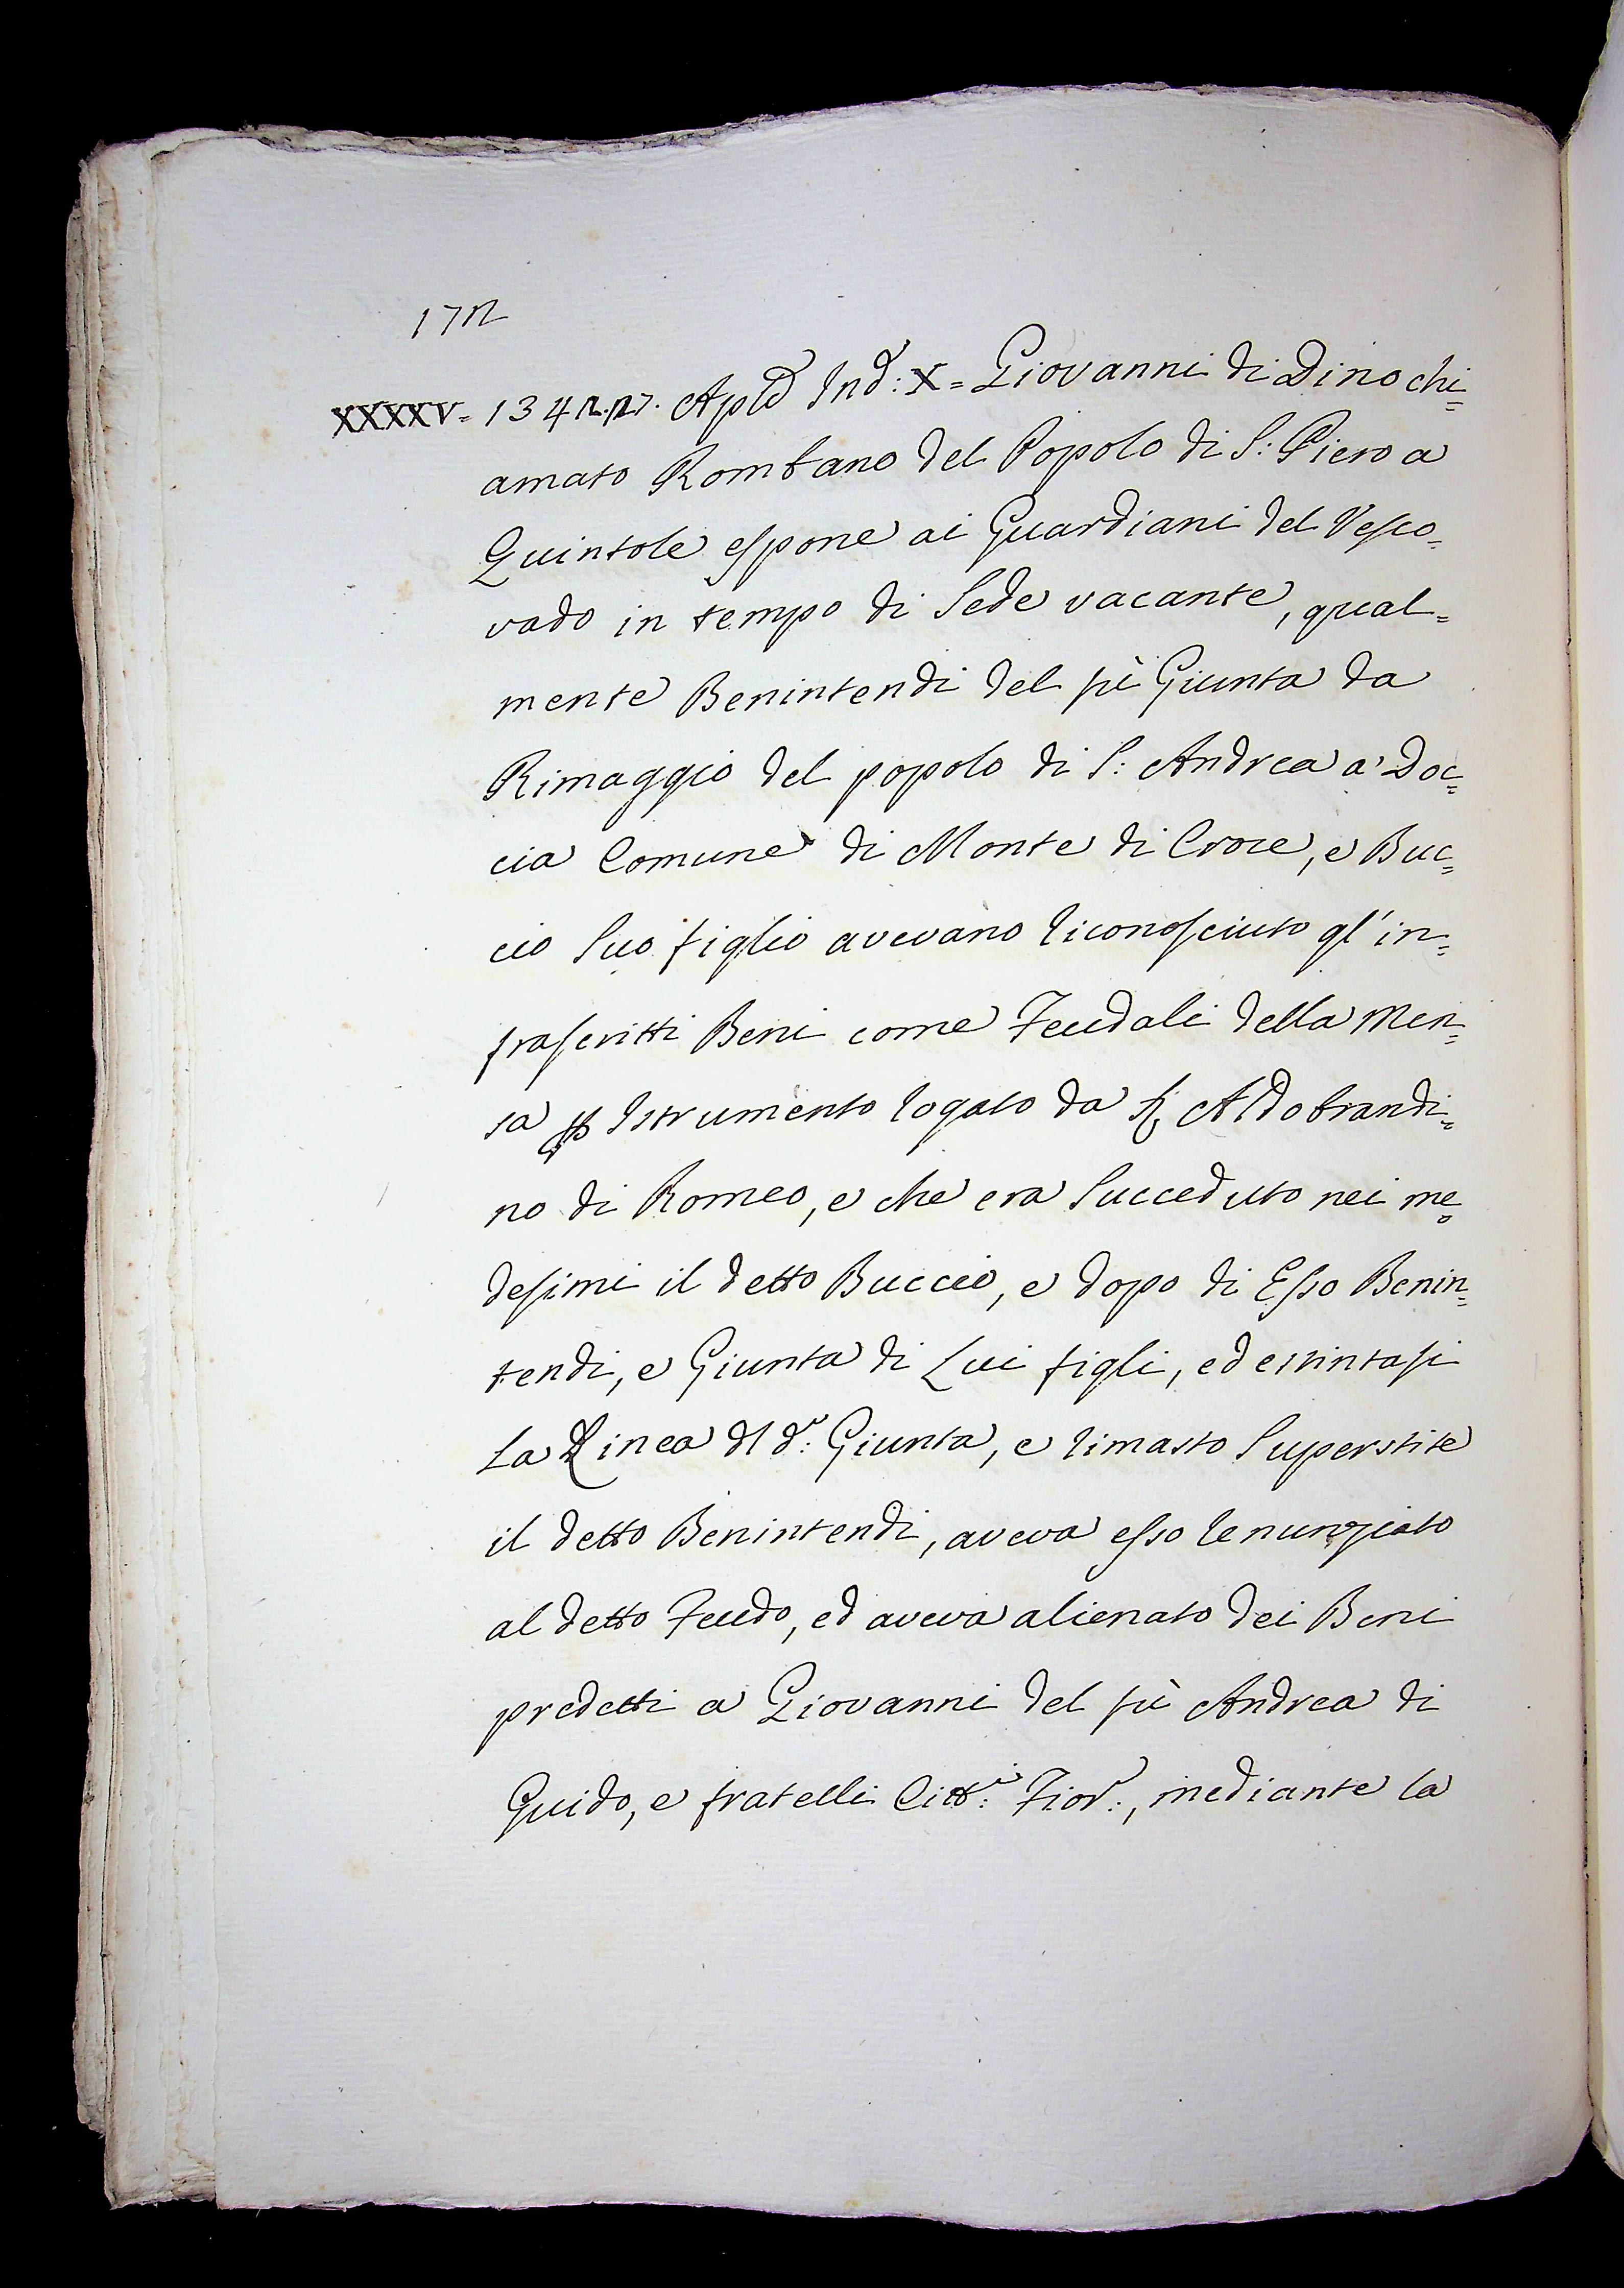 172
XXXXV= 1342.27. Apld Ind: X= Giovanni di Dino chi=
amato Rombano del Popolo di S: Piero a
Quintole espone ai Guardiani del Vesco=
vado in tempo di Sede vacante, qual=
mente Benintendi del fù Giunta da
Rimaggio del popolo di S: Andrea a' Doc=
cia Comune di Monte di Croce, e Buc=
cio Suo figlio avevano riconosciuto gl'in=
frascritti Beni come Feudali della Men=
sa p Istrumento rogato da Sr Aldobrandi=
no di Romeo, e che era Succeduto nei me=
desimi il detto Buccio, e dopo di Esso Benin=
tendi, e Giunta di Lui figli, ed estintasi
La Linea dl do: Giunta, e rimasto Superstite
il detto Benintendi, aveva esso renunziato
al detto Feudo, ed aveva alienato dei Beni
predetti a Giovanni del fù Andrea di
Guido, e fratelli Citt:i Fior:, mediante la